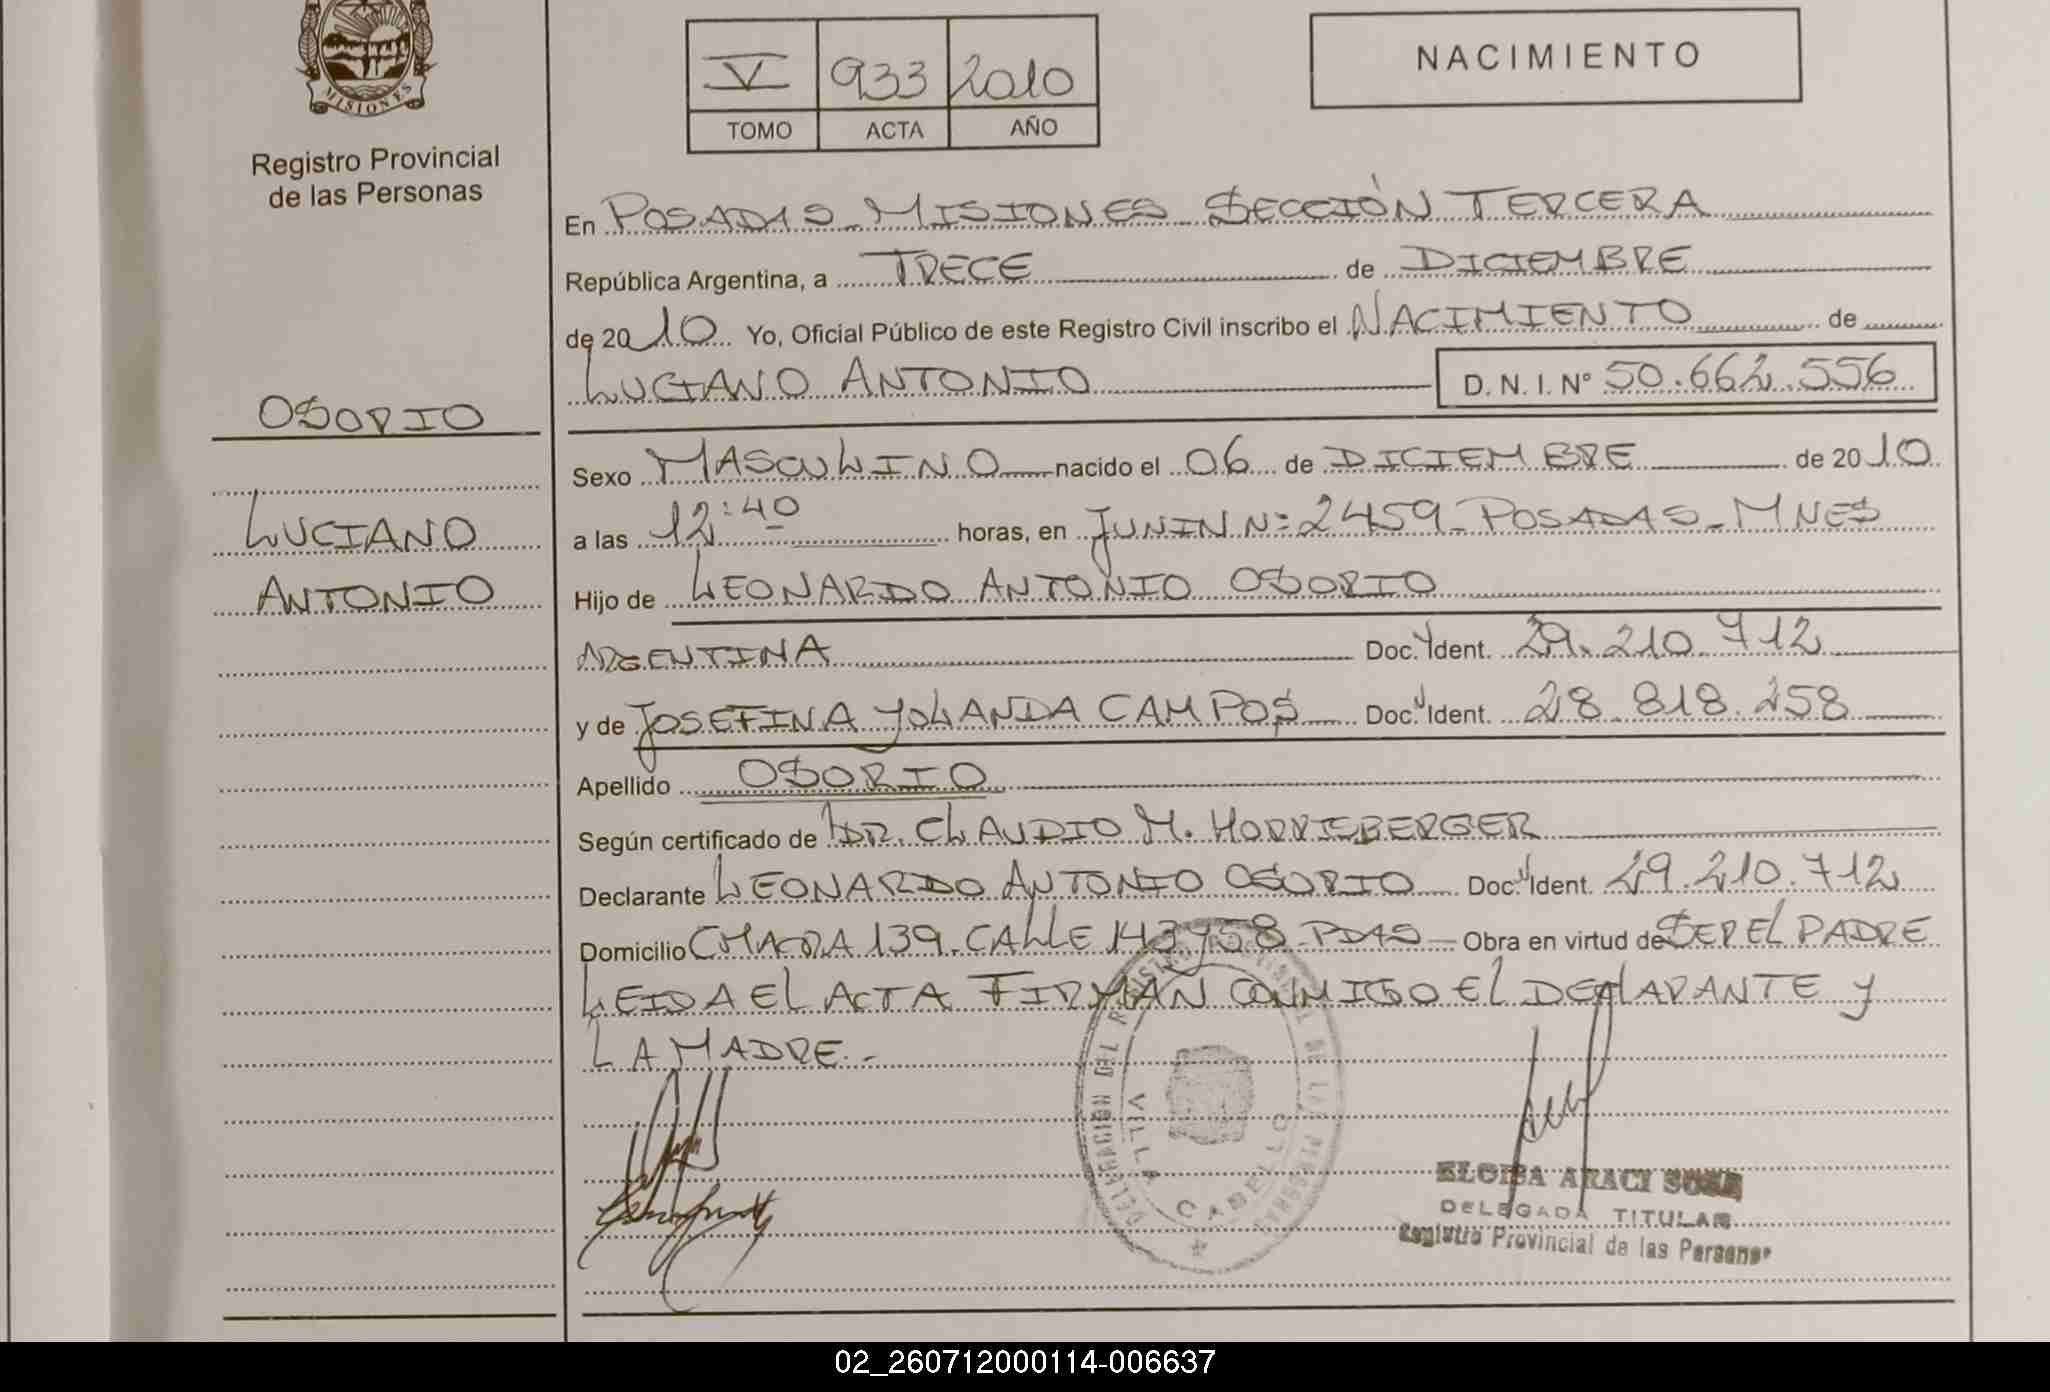 MISIONES
Registro Provincial
de las Personas
V 933 2010
TOMO ACTA AÑO
NACIMIENTO
En POSADAS - MISIONES SECCIÓN TERCERA
República Argentina, a TRECE de DICIEMBRE
de 2010 Yo, Oficial Público de este Registro Civil inscribo el NACIMIENTO de
LUCIANO ANTONIO D. N. I. Nº 50.662.556
OSORIO
LUCIANO
ANTONIO
Sexo MASCULINO nacido el 06 de DICIEMBRE de 2010
a las 12:40 horas, en JUNIN Nº 2459 - POSADAS - MNES
Hijo de LEONARDO ANTONIO OSORIO
ARGENTINA Doc. Ident. 29.210.712
y de JOSEFINA YOLANDA CAMPOS Doc. Ident. 28.818.258
Apellido OSORIO
Según certificado de DR. CLAUDIO M. HORRISBERGER
Declarante LEONARDO ANTONIO OSORIO Doc. Ident. 29.210.712
Domicilio CHACRA 139. CALLE 143 y 58 - PDAS - Obra en virtud de SER EL PADRE
LEIDA EL ACTA FIRMAN CONMIGO EL DECLARANTE y
LA MADRE.-
VILLA CABELLO
ELOISA ARACI SOSA
DELEGADA TITULAR
Registro Provincial de las Personas
02_260712000114-006637